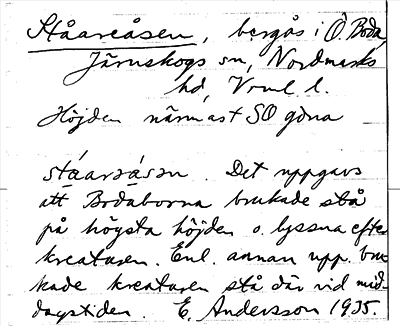 Ståareåsen, bergås i Ö. Boda,
Järnskogs sn, Nordmarks
hd, Vrml. l.
Höjden närmast SO gdna
ståaråsən. Det uppgavs
att Bodaborna brukade stå
på högsta höjden o. lyssna efter
kreaturen. Enl. annan upp. bru
kade kreaturen stå där vid mid-
dagstiden. E. Andersson 1935.